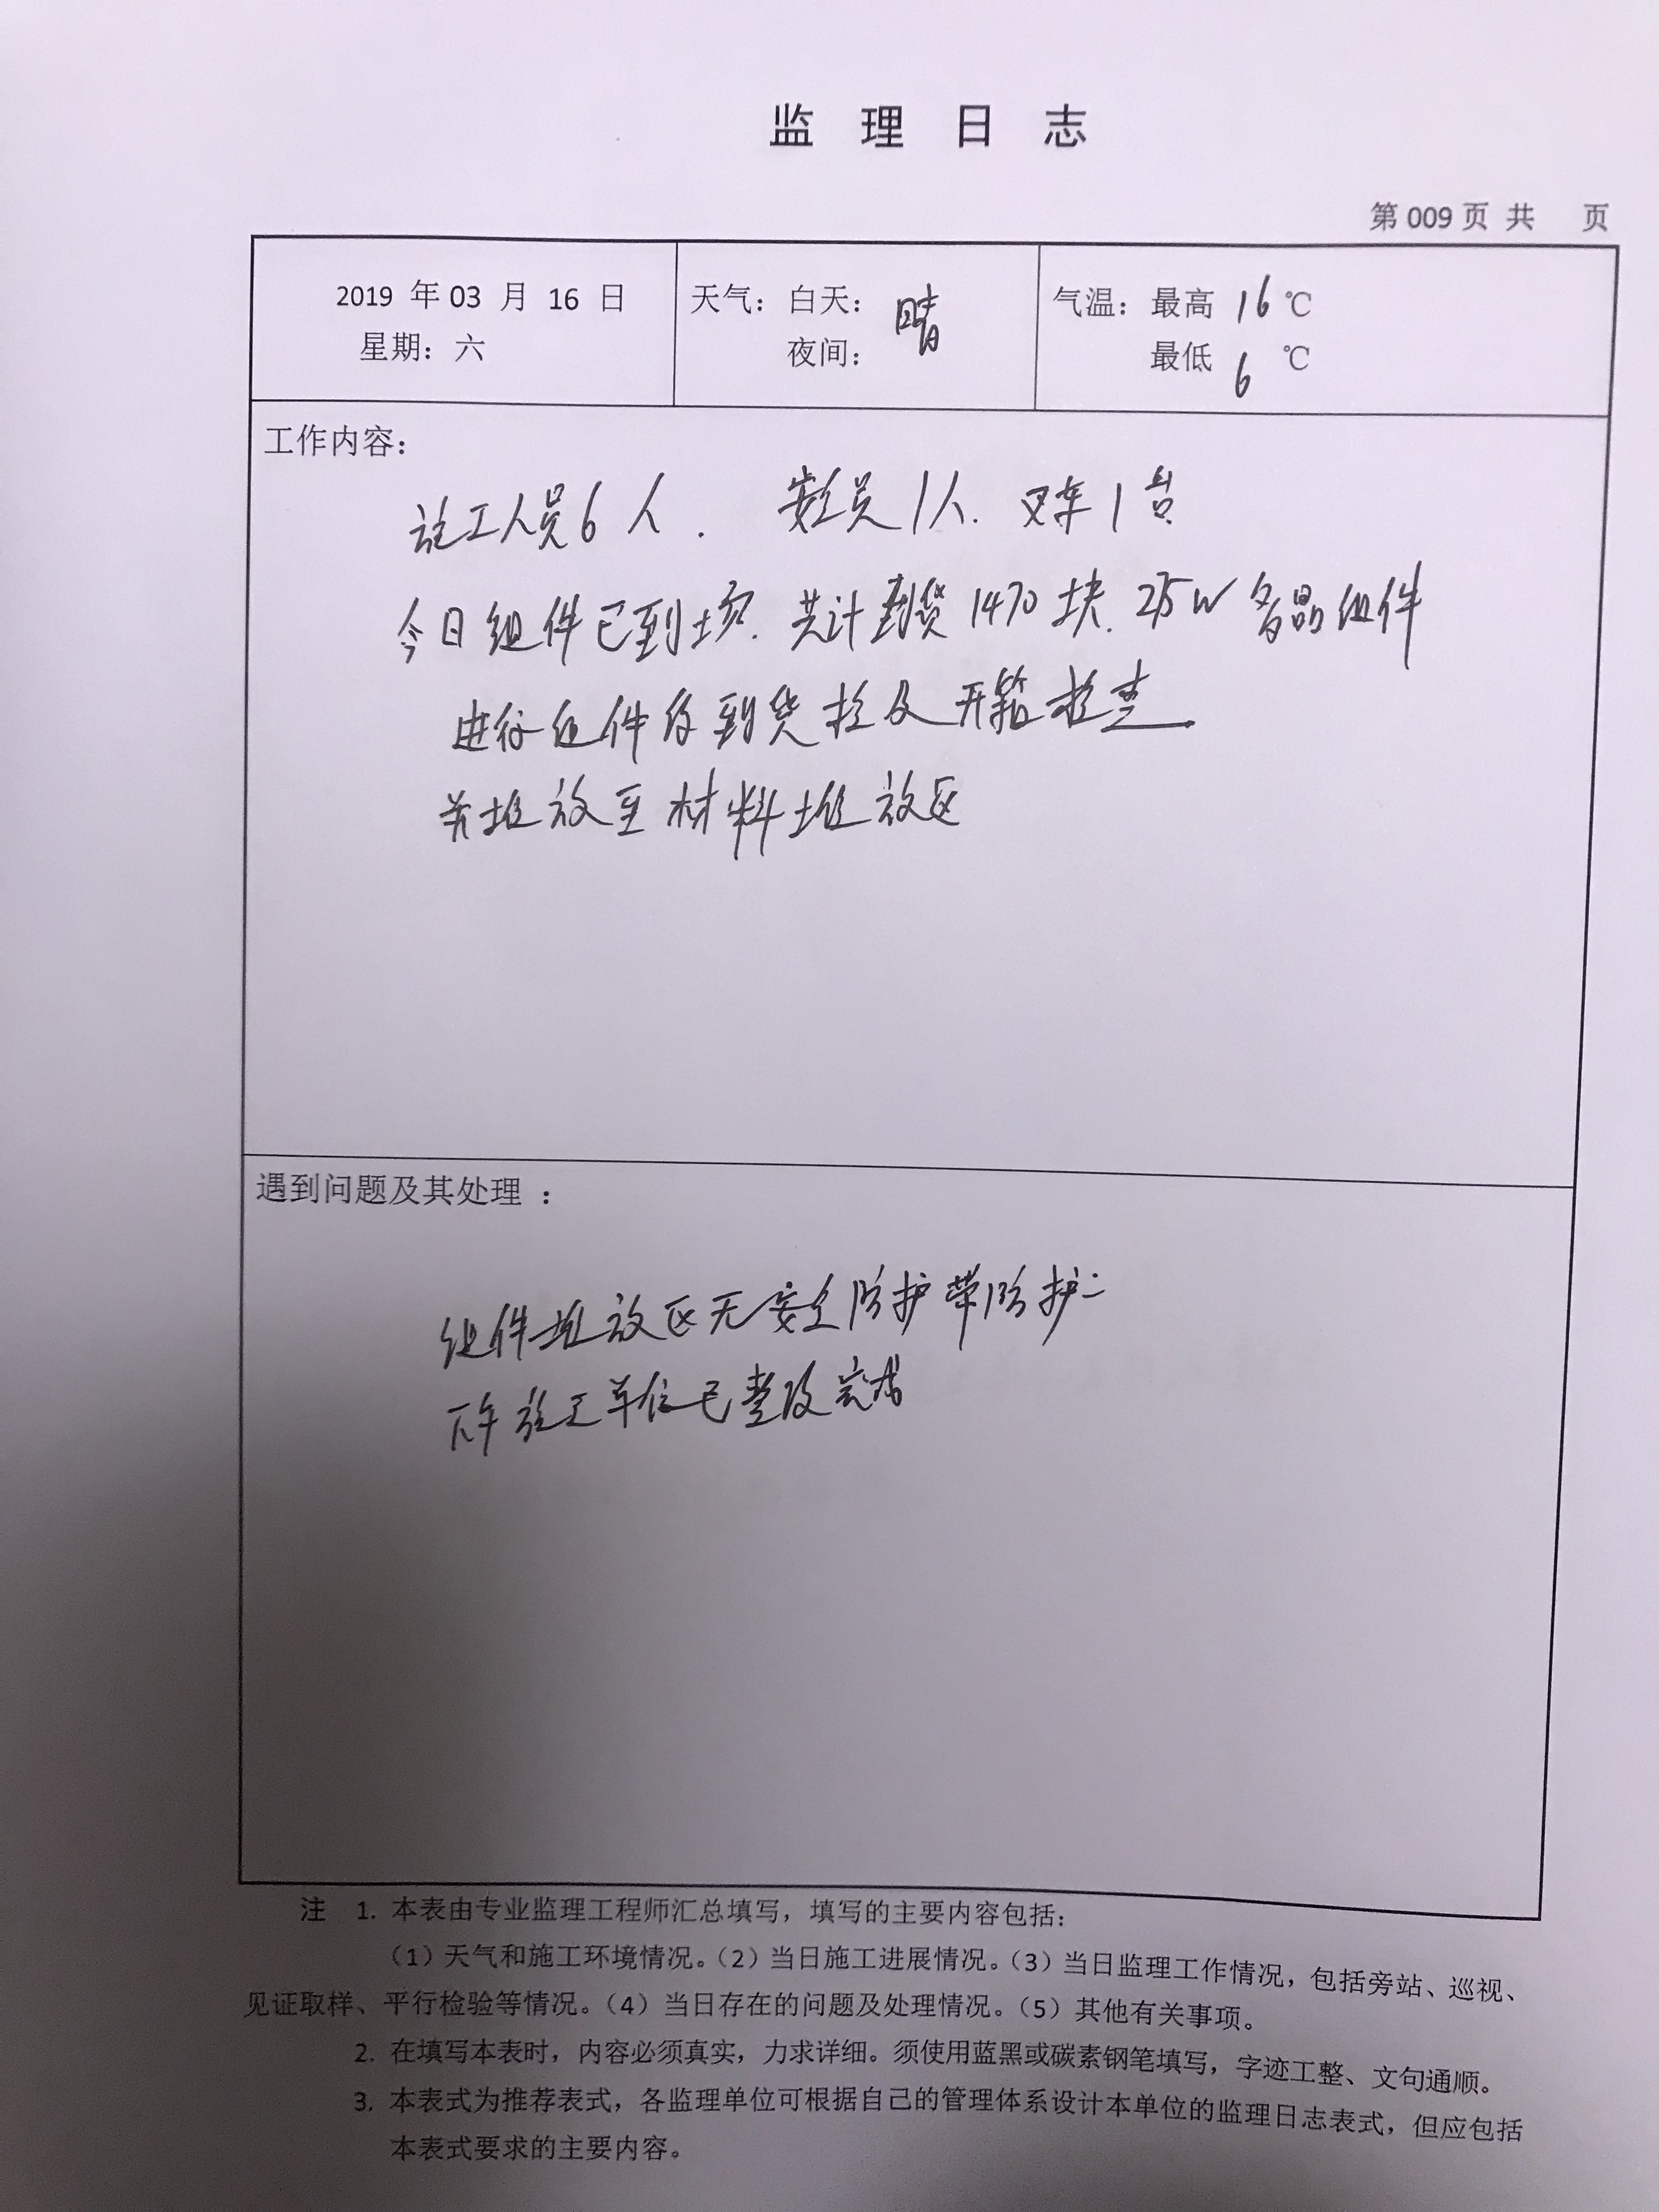 监理日志
第 009 页 共 页
2019 年 03 月 16 日
星期：六
天气：白天：晴
夜间：
气温：最高 16 ℃
最低 6 ℃
工作内容：
施工人员6人. 安全员1人. 叉车1台
今日组件已到场. 共计到货1470块. 275W多晶组件
进行组件的到货检及开箱检查
并堆放至材料堆放区
遇到问题及其处理：
组件堆放区无安全防护带防护
下午施工单位已整改完成
注 1. 本表由专业监理工程师汇总填写，填写的主要内容包括：
（1）天气和施工环境情况。（2）当日施工进展情况。（3）当日监理工作情况，包括旁站、巡视、
见证取样、平行检验等情况。（4）当日存在的问题及处理情况。（5）其他有关事项。
2. 在填写本表时，内容必须真实，力求详细。须使用蓝黑或碳素钢笔填写，字迹工整、文句通顺。
3. 本表式为推荐表式，各监理单位可根据自己的管理体系设计本单位的监理日志表式，但应包括
本表式要求的主要内容。